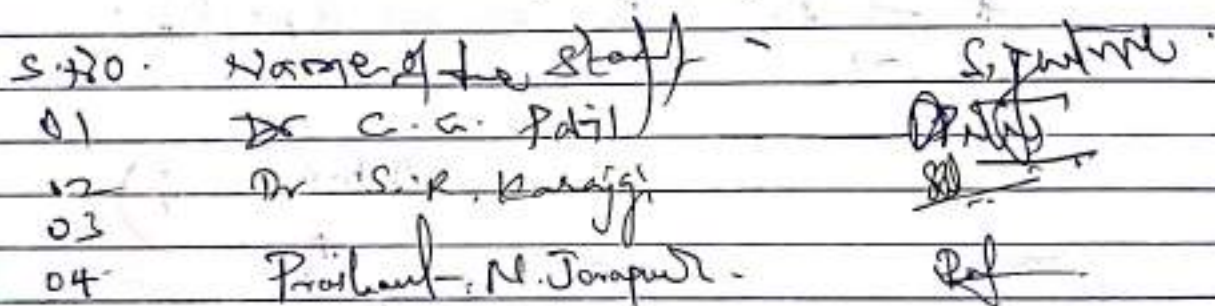 S.NO. Name of the Staff Signature
01 Dr C.G. Patil
02 Dr S.R. Karajgi
03
04 Prashant. N.